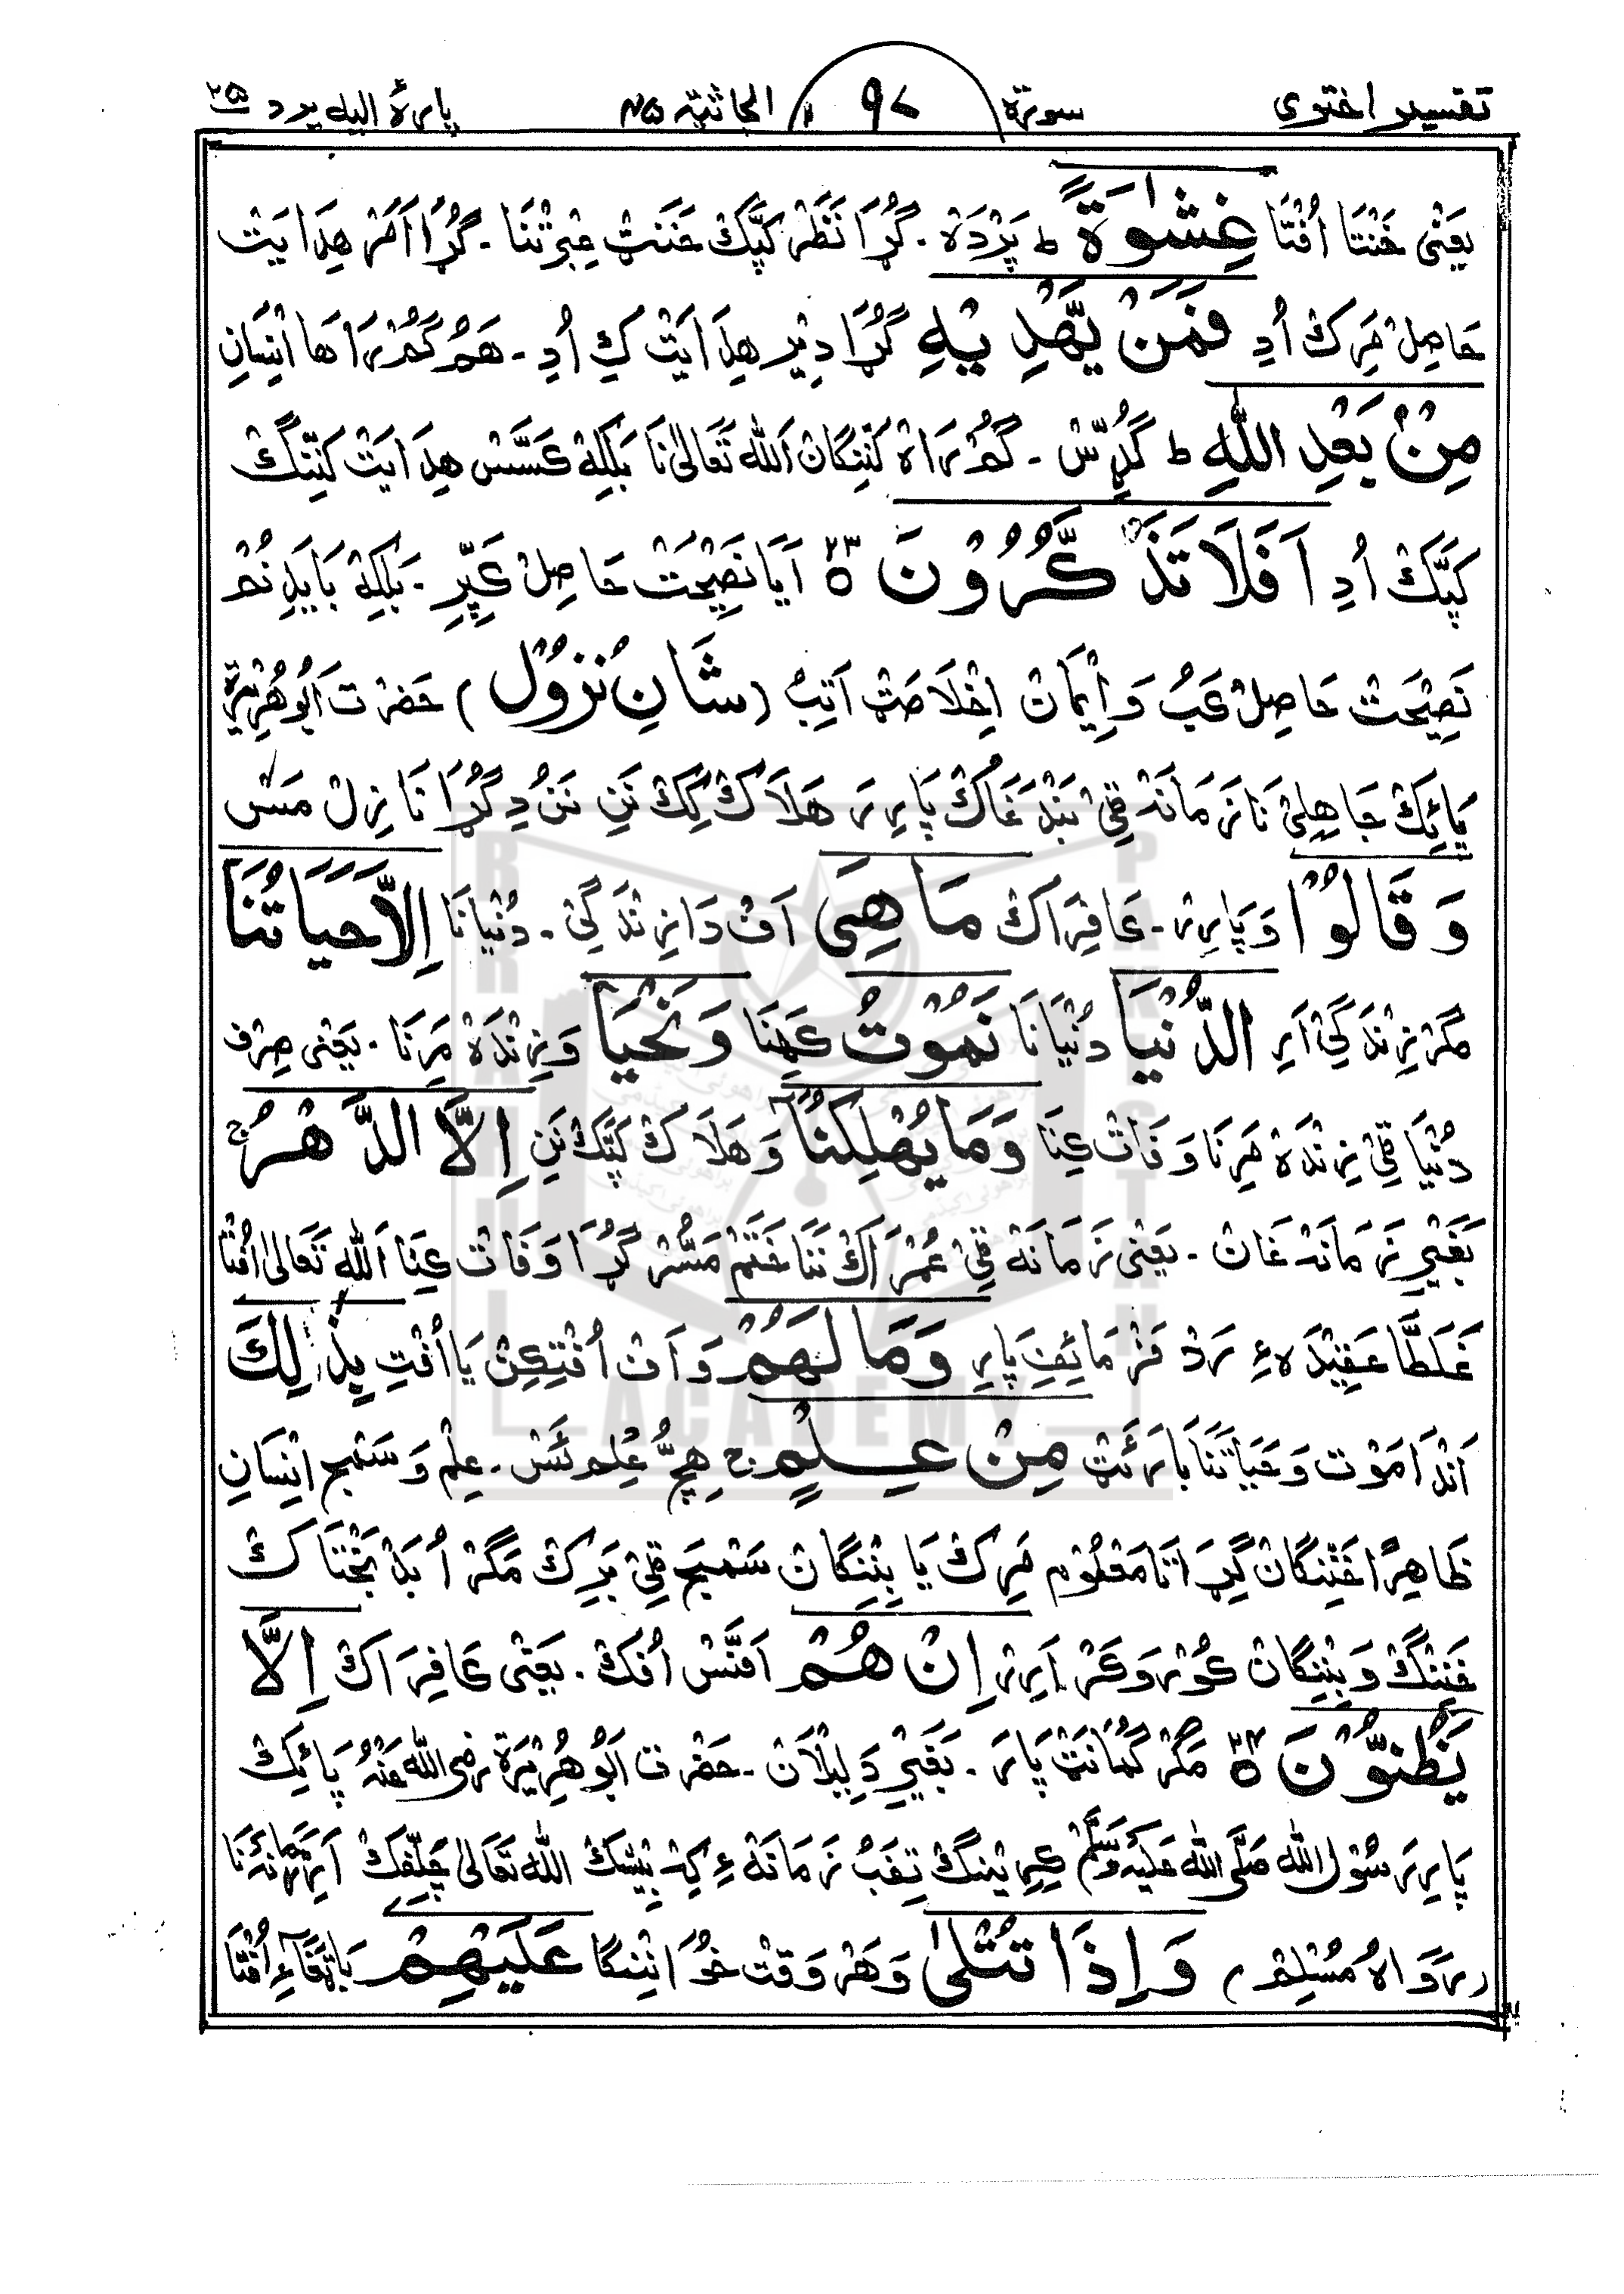 تفسیر اختوی سورۃ ۹۷ الجاثیۃ ۴۵ پارۂ الیہ یرد ۲۵
یَعْنٰی خَنْتَا اُفْتَا غِشٰوَۃً ط پَرْدَہْ ۔ گُڑَا نَظَرْ کَپَّکْ خَنَتْ عِبْرَتْنَا ۔ گُڑَا اَمَرْ ھِدَایَتْ
حَاصِلْ مَرِکْ اُدِ فَمَنْ یَّھْدِ یْہِ گُڑَا دِیْر ھِدَایَتْ کِ اُدِ ۔ ھَمُ گُمْرَاھَا اِنْسَانِ
مِنْ بَعْدِ اللہِ ط گُڈِّسْ ۔ گُمْرَاہْ کَنِّنگَانْ اَللہ تَعَالٰی نَا بَلِکْہ کَسَّسْ ھِدَایَتْ کَنِّنگْ
کَپَّکْ اُدِ اَفَلَا تَذَکَّرُوْنَ ۲۳ اَیَا نَصِیْحَتْ حَاصِلْ کَپِّرِ ۔ بَلِکْہ بَایَدِ نُمْ
نَصِیْحَتْ حَاصِلْ کَبُ وَ اِیْمَانْ اِخْلَاصَتْ اَتِبُ (شَانِ نُزُوْل) حَضْرَت اَبُو ھُرَیْرَۃ
پَائِکْ جَاھِلِیْ نَا زَمَانَہْ قِیْ بَنْدَغَاکْ پَارِرَ ھَلَاکْ کِکْ نَنِ نَنْ دِ گُڑَا نَازِلْ مَسْ
وَقَالُوْا وَ پَارِرْ ۔ کَافِرَاکْ مَا ھِیَ اَفْ دَا زِنْدَگِیْ ۔ دُنْیَانَا اِلَّا حَیَاتُنَا
مَگَرْ زِنْدَگِیْ اَرِ الدُّنْیَا دُنْیَانَا نَمُوْتُ کَہِنَا وَنَحْیَا وَ زِنْدَہْ مَرِنَا ۔ یَعْنٰی صِرْف
دُنْیَا قِیْ زِنْدَہْ مَرِنَا وَفَاتْ کِنَا وَمَا یُھْلِکُنَا وَ ھَلَاکْ کَپَّکْ نَنِ اِلَّا الدَّھْرُ ج
بَغَیْرِ زَمَانَہ غَانْ ۔ یَعْنٰی زَمَانَہ قِیْ عُمْرَاکْ نَنَا خَتَمْ مَسُّرْ گُڑَا وَفَاتْ کِنَا اَللہ تَعَالٰی اُفْتَا
غَلَطَّا عَقِیْدَہ ءِ رَدْ فَرْمَائِفِ پَارِ وَمَا لَھُمْ وَ اَفْ اُفْتِکِنْ یَا اُفْتِ بِذٰلِکَ
اَنْدَا مَوْت وَ حَیَاتَنَا بَارَئَتْ مِنْ عِلْمٍ ج ھِچُّ عِلْم ئَسْ ۔ عِلْم وَ سَمَجْ اِنْسَانِ
ظَاھِرًا خَنِنْگَانْ گِرَا اَنَا مَعْلُوْم مَرِکْ یَا بِنِنْگَانْ سَمَجْ قِیْ بَرِکْ مَگَرْ اُ بَدْبَخْتَاکْ
خَنِنْگْ وَ بِنِنْگَانْ کُوْر وَ کَرْ اَرِرْ اِنْ ھُمْ اَفَسْ اُفْکْ ۔ یَعْنٰی کَافِرَاکْ اِلَّا
یَظُنُّوْنَ ۲۴ مَگَرْ گُمَانَتْ پَارَ ۔ بَغَیْرِ دَلِیْلَانْ ۔ حَضْرَت اَبُو ھُرَیْرَۃ رضی اللہ عنہُ پَائِکْ
پَارِرَ سُوْل اللہ صَلَّی اللہ عَلَیْہِ وَسَلَّمْ کِرِیْنگْ تِفَبُ زَمَانَہ ءِ کِہ بِیْشَکْ اللہ تَعَالٰی چَلِّفِکْ اَرِ زَمَانَہ نَا
(رَوَاہُ مُسْلِمْ) وَاِذَا تُتْلٰی وَھَرْ وَقَتْ خُوَانِنْگَا عَلَیْھِمْ بَاتِّفَاءِ اُفْتَا